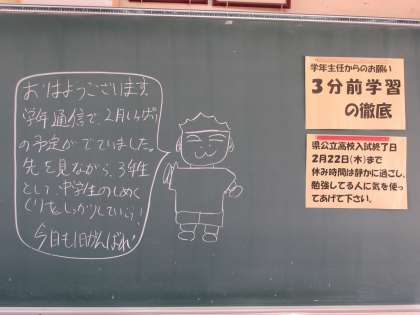 おはようございます
学年通信で、2月いっぱい
の予定がでていました。
先を見ながら、3年生
として、中学生のしめく
くりをしっかりしていこう!
今日も1日がんばれ!
学年主任からのお願い
3分前学習
の徹底
県公立高校入試終了日
2月22日(木)まで
休み時間は静かに過ごし、
勉強してる人に気を使っ
てあげて下さい。